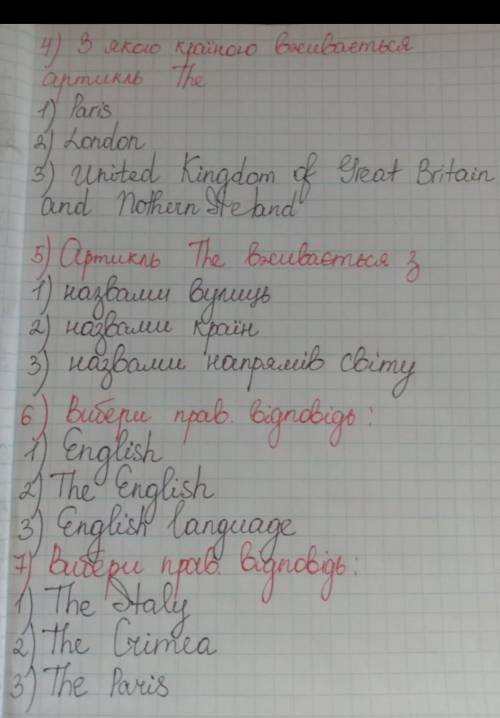 4) З якою країною вживається
артикль The
1) Paris
2) London
3) United Kingdom of Great Britain
and Nothern Ireland
5) Артикль The вживається з
1) назвами вулиць
2) назвами країн
3) назвами напрямів світу
6) Вибери прав. відповідь:
1) English
2) The English
3) English language
7) Вибери прав. відповідь:
1) The Italy
2) The Crimea
3) The Paris